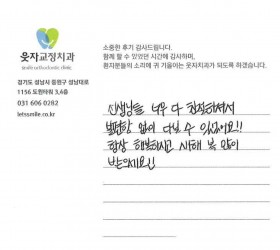 웃자교정치과
smile orthodontic clinic
경기도 성남시 중원구 성남대로
1156 도원타워 3,4층
031 606 0282
letssmile.co.kr
소중한 후기 감사드립니다.
함께 할 수 있었던 시간에 감사하며,
환자분들의 소리에 귀 기울이는 웃자치과가 되도록 하겠습니다.
선생님들 너무 다 친절하셔서
불편함 없이 다닐 수 있었어요!!
항상 행복하시고 새해 복 많이
받으세요!!